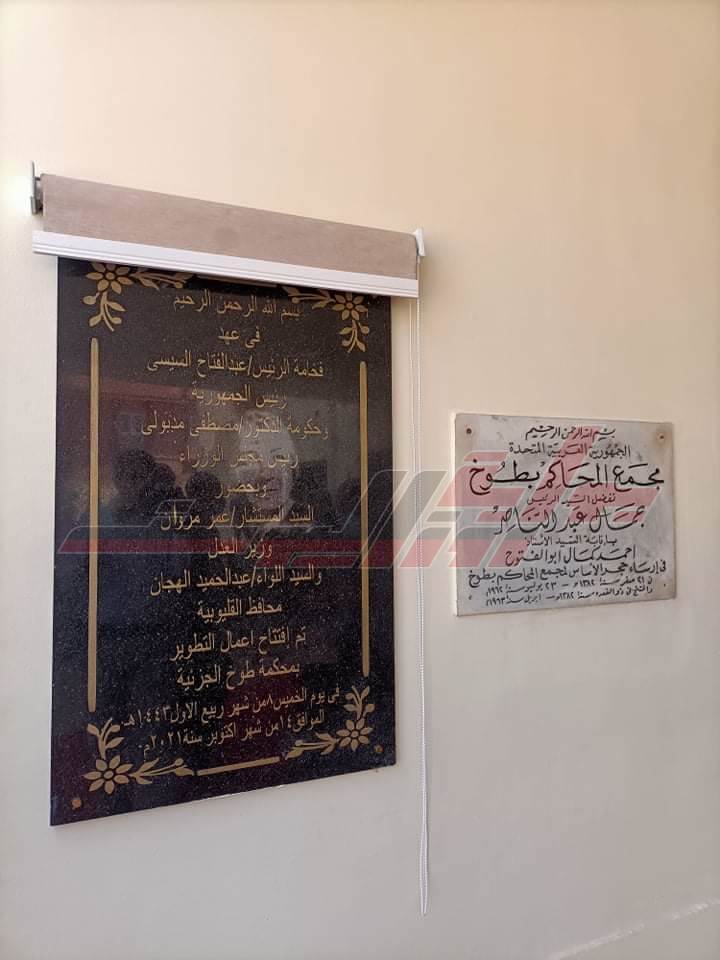 بسم الله الرحمن الرحيم
فى عهد
فخامة الرئيس/عبدالفتاح السيسى
رئيس الجمهورية
وحكومة الدكتور/مصطفى مدبولى
رئيس مجلس الوزراء
وبحضور
السيد المستشار/عمر مروان
وزير العدل
والسيد اللواء/عبدالحميد الهجان
محافظ القليوبية
تم إفتتاح اعمال التطوير
بمحكمة طوخ الجزئية
فى يوم الخميس ٨من شهر ربيع الاول ١٤٤٣هـ
الموافق ١٤من شهر اكتوبر سنة ٢٠٢١م.
بسم الله الرحمن الرحيم
الجمهورية العربية المتحدة
مجمع المحاكم بطوخ
تفضل السيد الرئيس
جمال عبد الناصر
بإنابة السيد الأستاذ
احمد كمال ابو الفتوح
فى إرساء حجر الأساس لمجمع المحاكم بطوخ
فى ٢١ صفر سنة ١٣٨٢هـ - ٢٣ يوليو سنة ١٩٦٢
وافتتح فى ذى القعدة سنة ١٣٨٢هـ - ابريل سنة ١٩٦٣